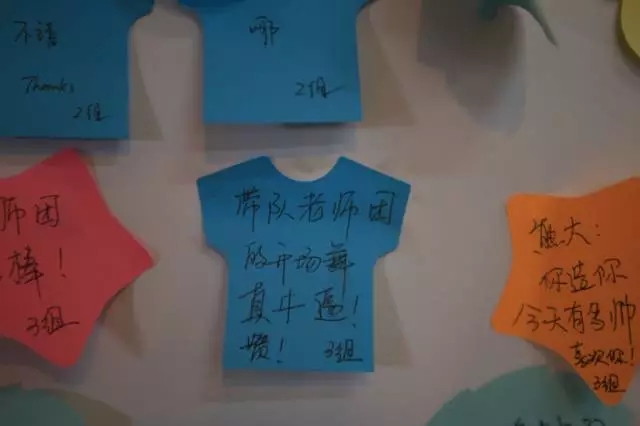 不错
Thanks
2组
哪
2组
师团
棒！
3组
带队老师团
的开场舞
真牛逼！
赞！ 3组
熊大：
你造你
今天有多帅
喜欢你！
3组